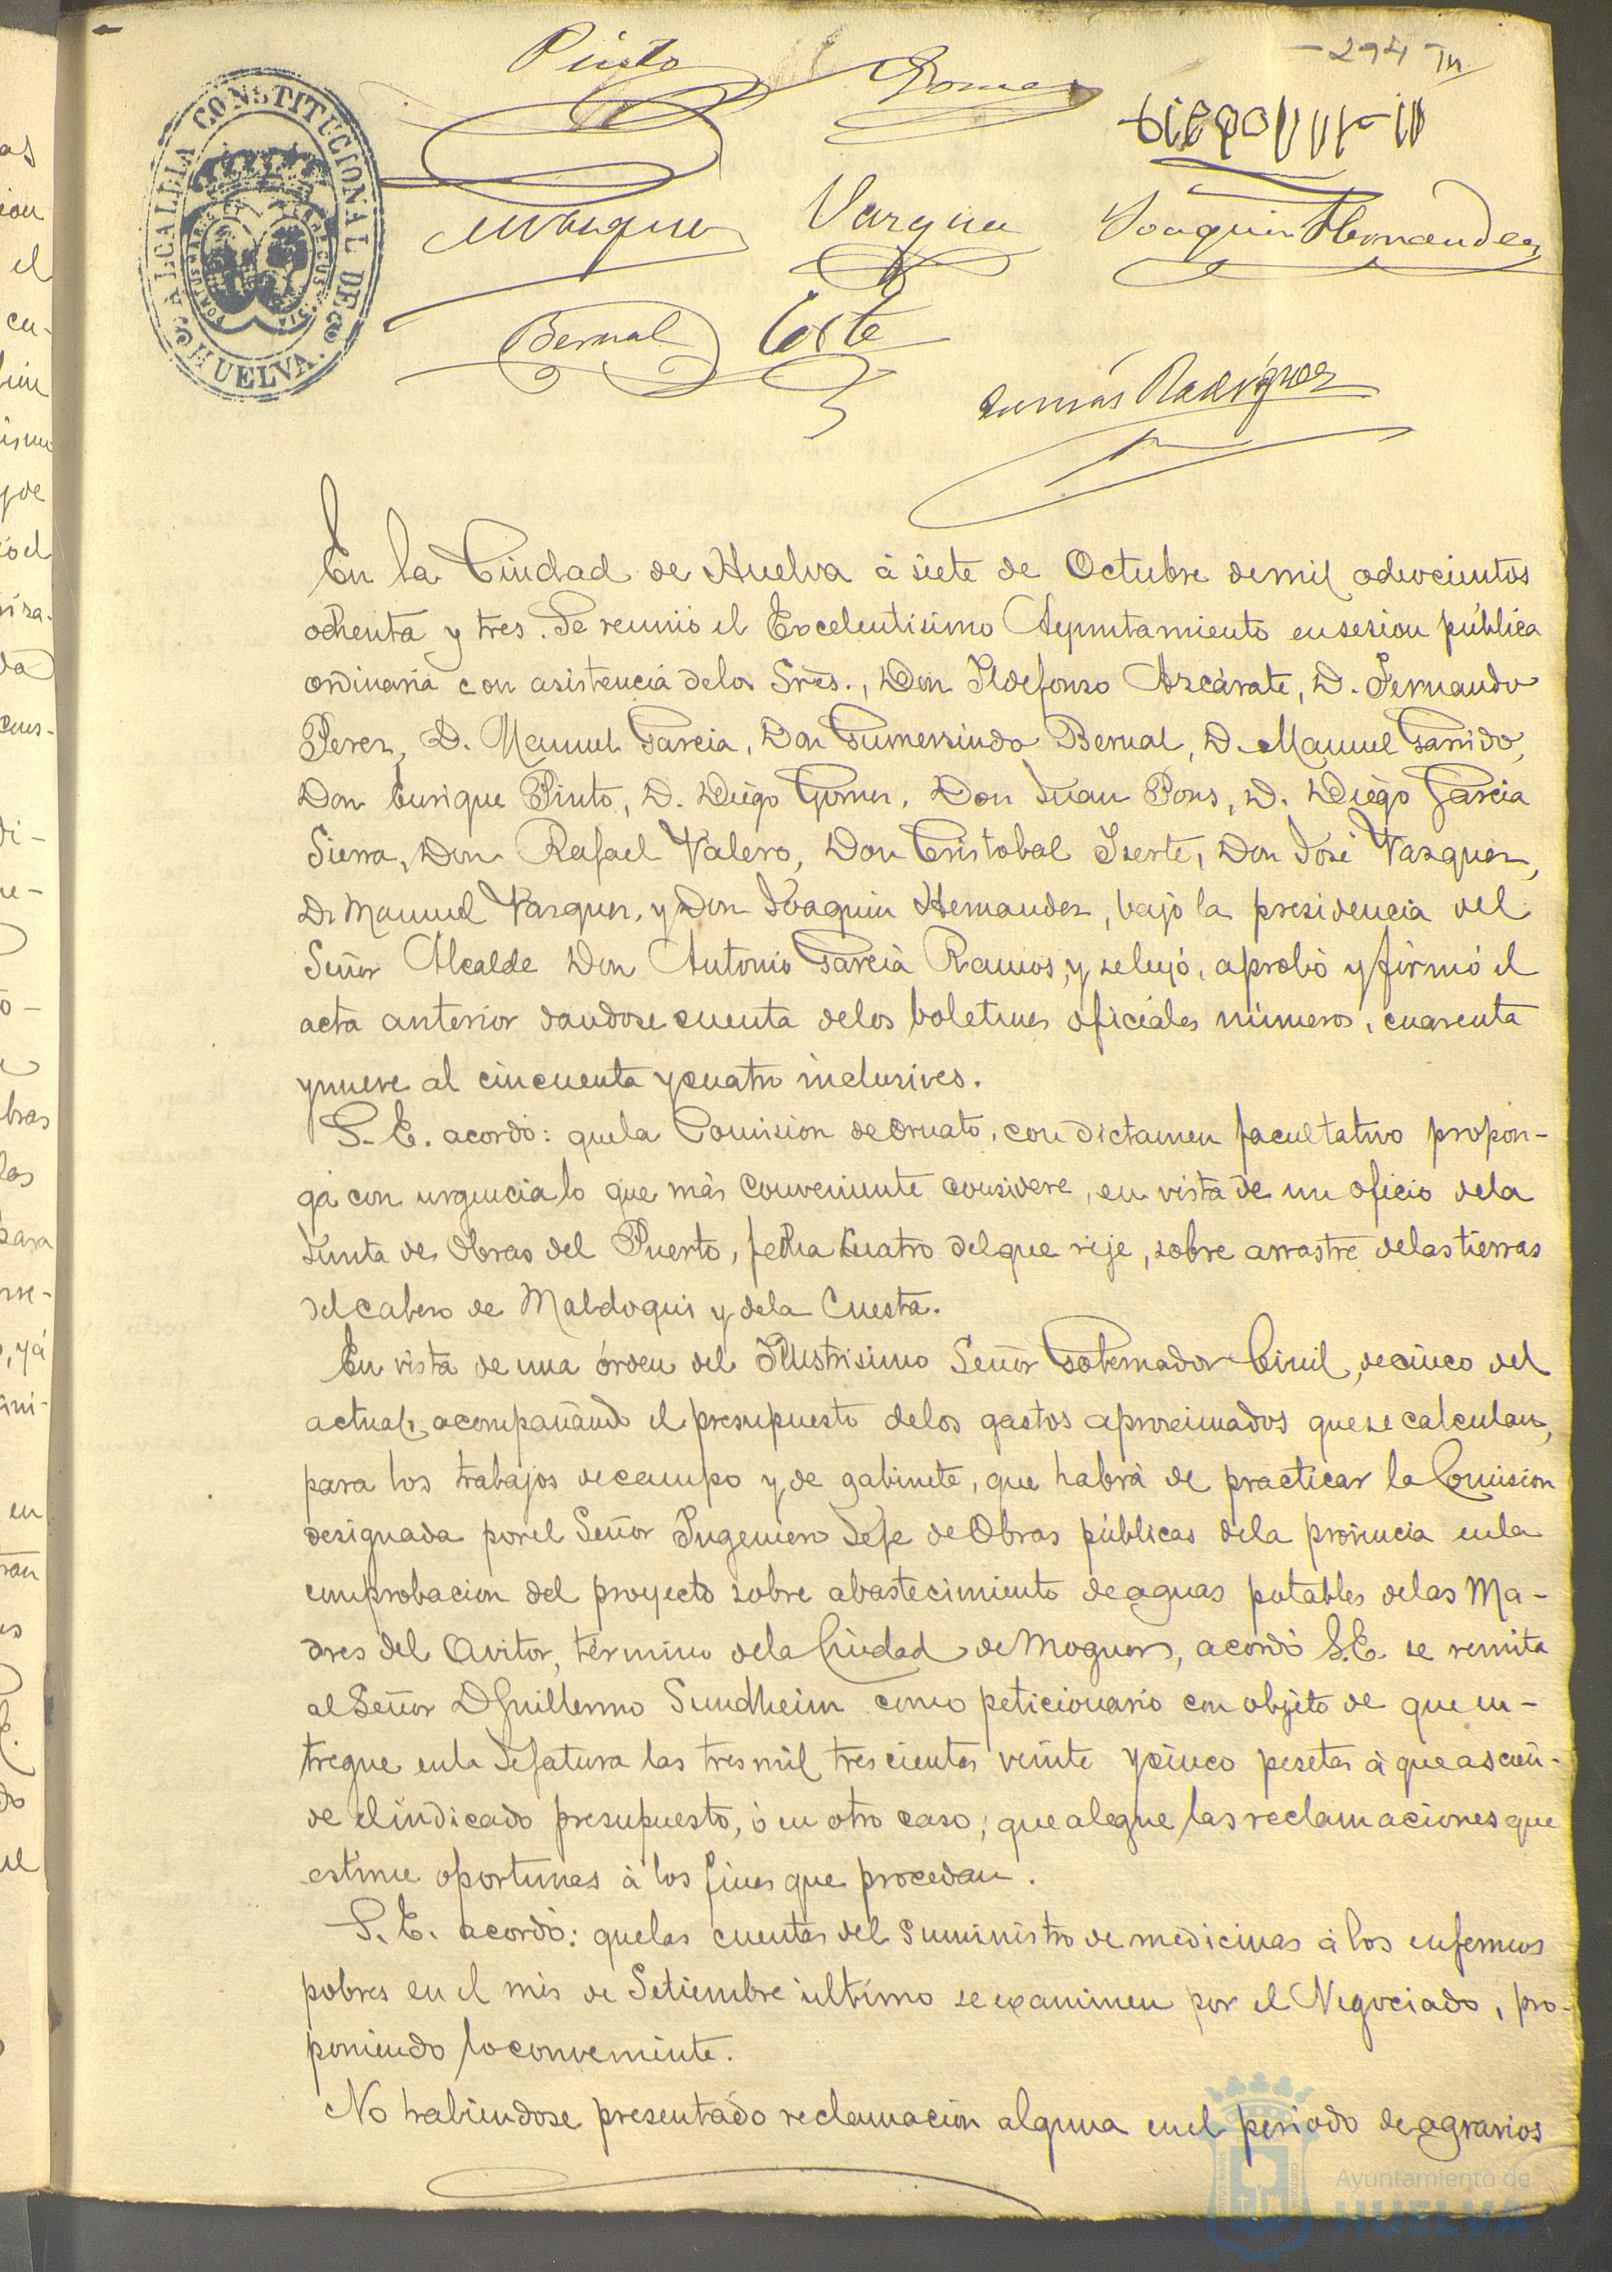 294
Pinto
Gomez
ALCALDIA CONSTITUCIONAL DE HUELVA.
Vazquez
Joaquin Hernandez
Bernal
Tomás Rodríguez
En la Ciudad de Huelva á siete de Octubre de mil ochocientos
ochenta y tres. Se reunió el Excelentísimo Ayuntamiento en sesion pública
ordinaria con asistencia de los Sres., Don Ildefonso Azcárate, D. Fernando
Perez, D. Manuel Garcia, Don Gumersindo Bernal, D. Manuel Garrido,
Don Enrique Pinto, D. Diego Gomez, Don Juan Pons, D. Diego Garcia
Sierra, Don Rafael Valero, Don Cristobal Iserte, Don José Vazquez,
D. Manuel Vazquez, y Don Joaquin Hernandez, bajo la presidencia del
Señor Alcalde Don Antonio Garcia Ramos, y se leyó, aprobó y firmó el
acta anterior dandose cuenta de los boletines oficiales números, cuarenta
y nueve al cincuenta y cuatro inclusives.
S. E. acordó: que la Comision de Ornato, con dictamen facultativo propon-
ga con urgencia lo que más conveniente considere, en vista de un oficio de la
Junta de Obras del Puerto, fecha cuatro del que rije, sobre arrastre de las tierras
del cabezo de Mal-doquis y de la Cuesta.
En vista de una órden del Illustrisimo Señor Gobernador Civil, de cinco del
actual, acompañando el presupuesto de los gastos aproximados que se calculan,
para los trabajos de campo y de gabinete, que habrá de practicar la Comision
designada por el Señor Ingeniero Jefe de Obras públicas de la provincia en la
comprobacion del proyecto sobre abastecimiento de aguas potables de las Ma-
dres del Avitor, término de la Ciudad de Moguer, acordó S. E. se remita
al Señor D Guillermo Sundheim como peticionario con objeto de que en-
tregue en la Jefatura las tres mil trescientas veinte y cinco pesetas á que ascien-
de el indicado presupuesto, ó en otro caso, que alegue las reclamaciones que
estime oportunas á los fines que procedan.
S. E. acordó: que las cuentas del suministro de medicinas á los enfermos
pobres en el mes de Setiembre último se examinen por el Negociado, pro-
poniendo lo conveniente.
No habiendose presentado reclamacion alguna en el periodo de agravios
Ayuntamiento de
HUELVA